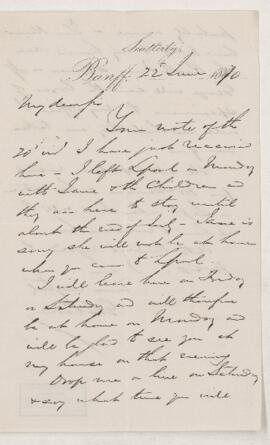 Banff. 22d June 1870
My dear Sir
Your note of the
20th inst I have just received
here - I left Lpool on Monday
with Janie & the Children and
they are here to stay until
about the end of July - Janie is
sorry she will not be at home
when you come to Lpool.
I will leave here on Friday
or Saturday and will therefore
be at home on Monday and
will be glad to see you at
my house on that evening
Drop me a line on Saturday
& say what time you will